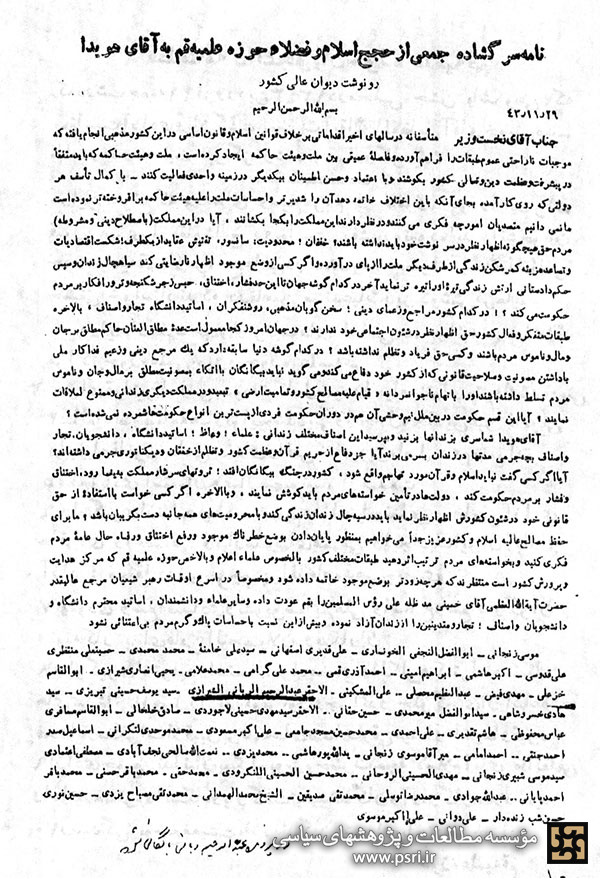 نامه سرگشاده جمعی از حجج اسلام و فضلاء حوزه علمیه قم به آقای هویدا
رونوشت دیوان عالی کشور
بسم الله الرحمن الرحیم
۴۳/۱۱/۲۹
جناب آقای نخست وزیر متأسفانه در سالهای اخیر اقداماتی بر خلاف قوانین اسلام و قانون اساسی در این کشور مذهبی انجام یافته که
موجبات ناراحتی عموم طبقات را فراهم آورده و فاصلهٔ عمیقی بین ملت و هیئت حاکمه ایجاد کرده است، ملت و هیئت حاکمه که باید متفقاً
در پیشرفت و عظمت دین و تعالی کشور بکوشند و با اعتماد و حسن اطمینان بیکدیگر در زمینه واحدی فعالیت کنند ـ با کمال تأسف هر
دولتی که روی کار آمده بجای آنکه باین اختلاف خاتمه دهد آن را شدیرتر و احساسات ملت را علیه هیئت حاکمه برافروخته تر نموده است
ما نمی دانیم متصدیان امور چه فکری می کنند و در نظر دارند این مملکت را بکجا بکشانند، آیا در این مملکت (باصطلاح دینی و مشروطه)
مردم حق هیچگونه اظهار نظر در سر نوشت خود باید نداشته باشند؟ خفقان؛ محدودیت، سانسور، تفتیش عقاید از یکطرف؛ شکست اقتصادیات
و تصاعد هزینه کمر شکن زندگی از طرف دیگر ملت را از پای در آورده و اگر کسی از وضع موجود اظهار نارضایتی کند سیاهچال زندان و سپس
حکم دادستانی ارتش زندگی تیره او را تیره تر نماید آخر در کدام گوشه جهان تا این حد فشار، اختناق، حبس زجر شکنجه و ترور افکار بر مردم
حکومت می کند؟ ! در کدام کشور مراجع و زعمای دینی؛ سخن گویان مذهبی، روشنفکران، اساتید دانشگاه تجار و اصناف، بالاخره
طبقات متفکر و فعال کشور حق اظهار نظر در شئون اجتماعی خود ندارند؟ در جهان امروز کجا معمول است عدهٔ مطلق العنان حاکم مطلق بر جان
و مال و ناموس مردم باشند و کسی حق فریاد و تظلم نداشته باشد؟ در کدام گوشه دنیا سابقه دارد که یک مرجع دینی و زعیم فداکار ملی
با داشتن مصونیت و صلاحیت قانونی که از کشور خود دفاع می کند و می گوید نباید بیگانگان با اتکاء بمصونیت مطلق بر مال و جان و ناموس
مردم تسلط داشته باشند او را با تهام ناجوانمردانه «قیام علیه مصالح کشور و تمامیت ارضی» تبعید و در مملکت دیگری زندانی و ممنوع الملاقات
نمایند؟ آیا این قسم حکومت در بین ملل نیم وحشی آن هم در دوران حکومت فردی از پست ترین انواع حکومتها شمرده نمی شده است؟
آقای هویدا شما سری بزندانها بزنید و بپرسید این اصناف مختلف زندانی: علماء؛ وعاظ؛ اساتید دانشگاه، دانشجویان، تجار
و اصناف بچه جرمی مدتها در زندان بسر می برند آیا جز دفاع از حریم قرآن و عظمت کشور و تظلم از خفقان و دیکتاتوری جرمی داشته اند؟
آیا اگر کسی گفت نباید اسلام و قرآن مورد تهاجم واقع شود، کشور در چنگ بیگانگان افتد؛ ثروتهای سرشار مملکت به یغما رود، اختناق
و فشار بر مردم حکومت کند، دولت ها در تأمین خواسته های مردم باید کوشش نمایند، و بالاخره اگر کسی خواست با استفاده از حق
قانونی خود در شئون کشورش اظهار نظر نماید باید در سیه چال زندان زندگی کند و با محرومیت های همه جانبه دست بگریبان باشد؟ ما برای
حفظ مصالح عالیه اسلام و کشور عزیز جداً می خواهیم بمنظور پایان دادن بوضع خطرناک موجود و رفع اختناق و رفاه حال عامهٔ مردم
فکری کنید و بخواسته های مردم ترتیب اثر دهید طبقات مختلف کشور بالخصوص علماء اعلام و بالاخص حوزه علمیه قم که مرکز هدایت
و پرورش کشور است منتظرند که هر چه زودتر بوضع موجود خاتمه داده شود و مخصوصاً در اسرع اوقات رهبر شیعیان مرجع عالیقدر
حضرت آیة الله العظمی آقای خمینی مد ظله علی رؤس المسلمین را بقم عودت داده و سایر علماء و دانشمندان، اساتید محترم دانشگاه و
دانشجویان و اصناف؛ تجار و متدینین را از زندان آزاد نموده و بیش از این نسبت باحساسات پاک و گرم مردم بی اعتنائی نشود
موسی زنجانی ـ ابوالفضل النجفی الخونساری ـ علی قدیری اصفهانی ـ سید علی خامنهٔ ـ محمد محمدی ـ حسینعلی منتظری
علی قدوسی ـ اکبر هاشمی ـ ابراهیم امینی ـ احمد آذری قمی ـ محمد علی گرامی ـ محمد علامی ـ یحیی انصاری شیرازی ـ ابوالقاسم
خزعلی ـ مهدی فیض ـ عبدالعظیم محصلی ـ علی المشکینی ـ الاحقر عبدالرحیم الربانی الشیرازی ـ سید یوسف حسینی تبریزی ـ سید
هادی خسروشاهی ـ سید ابوالفضل میر محمدی ـ حسین حقانی ـ الاحقر سید مهدی حسینی لاجوردی ـ صادق خلخالی ـ ابوالقاسم مسافری
عباس محفوظی ـ هاشم تقدیری ـ علی احمدی ـ محمد حسین مسجد جامعی ـ علی اکبر مسعودی ـ محمد موحدی لنکرانی ـ اسماعیل صدر
احمد جنتی ـ احمد امامی ـ میر آقا موسوی زنجانی ـ یدالله پور هاشمی ـ محمد یزدی ـ نعمت الله صالحی نجف آبادی ـ مصطفی اعتمادی
سید موسی شبیری زنجانی ـ مهدی الحسینی الروحانی ـ محمد حسین الحسینی اللنکرودی ـ محمد حقی ـ محمد باقر حسنی ـ محمد باقر
احمد پایانی ـ عبدالله جوادی ـ محمد رضا توسلی ـ محمد تقی صدیقین ـ الشیخ محمد الهمدانی ـ محمد تقی مصباح یزدی ـ حسین نوری
حسین شب زنده دار ـ علی دوانی ـ علی اکبر موسوی
مؤسسه مطالعات و پژوهشهای سیاسی
www.psri.ir